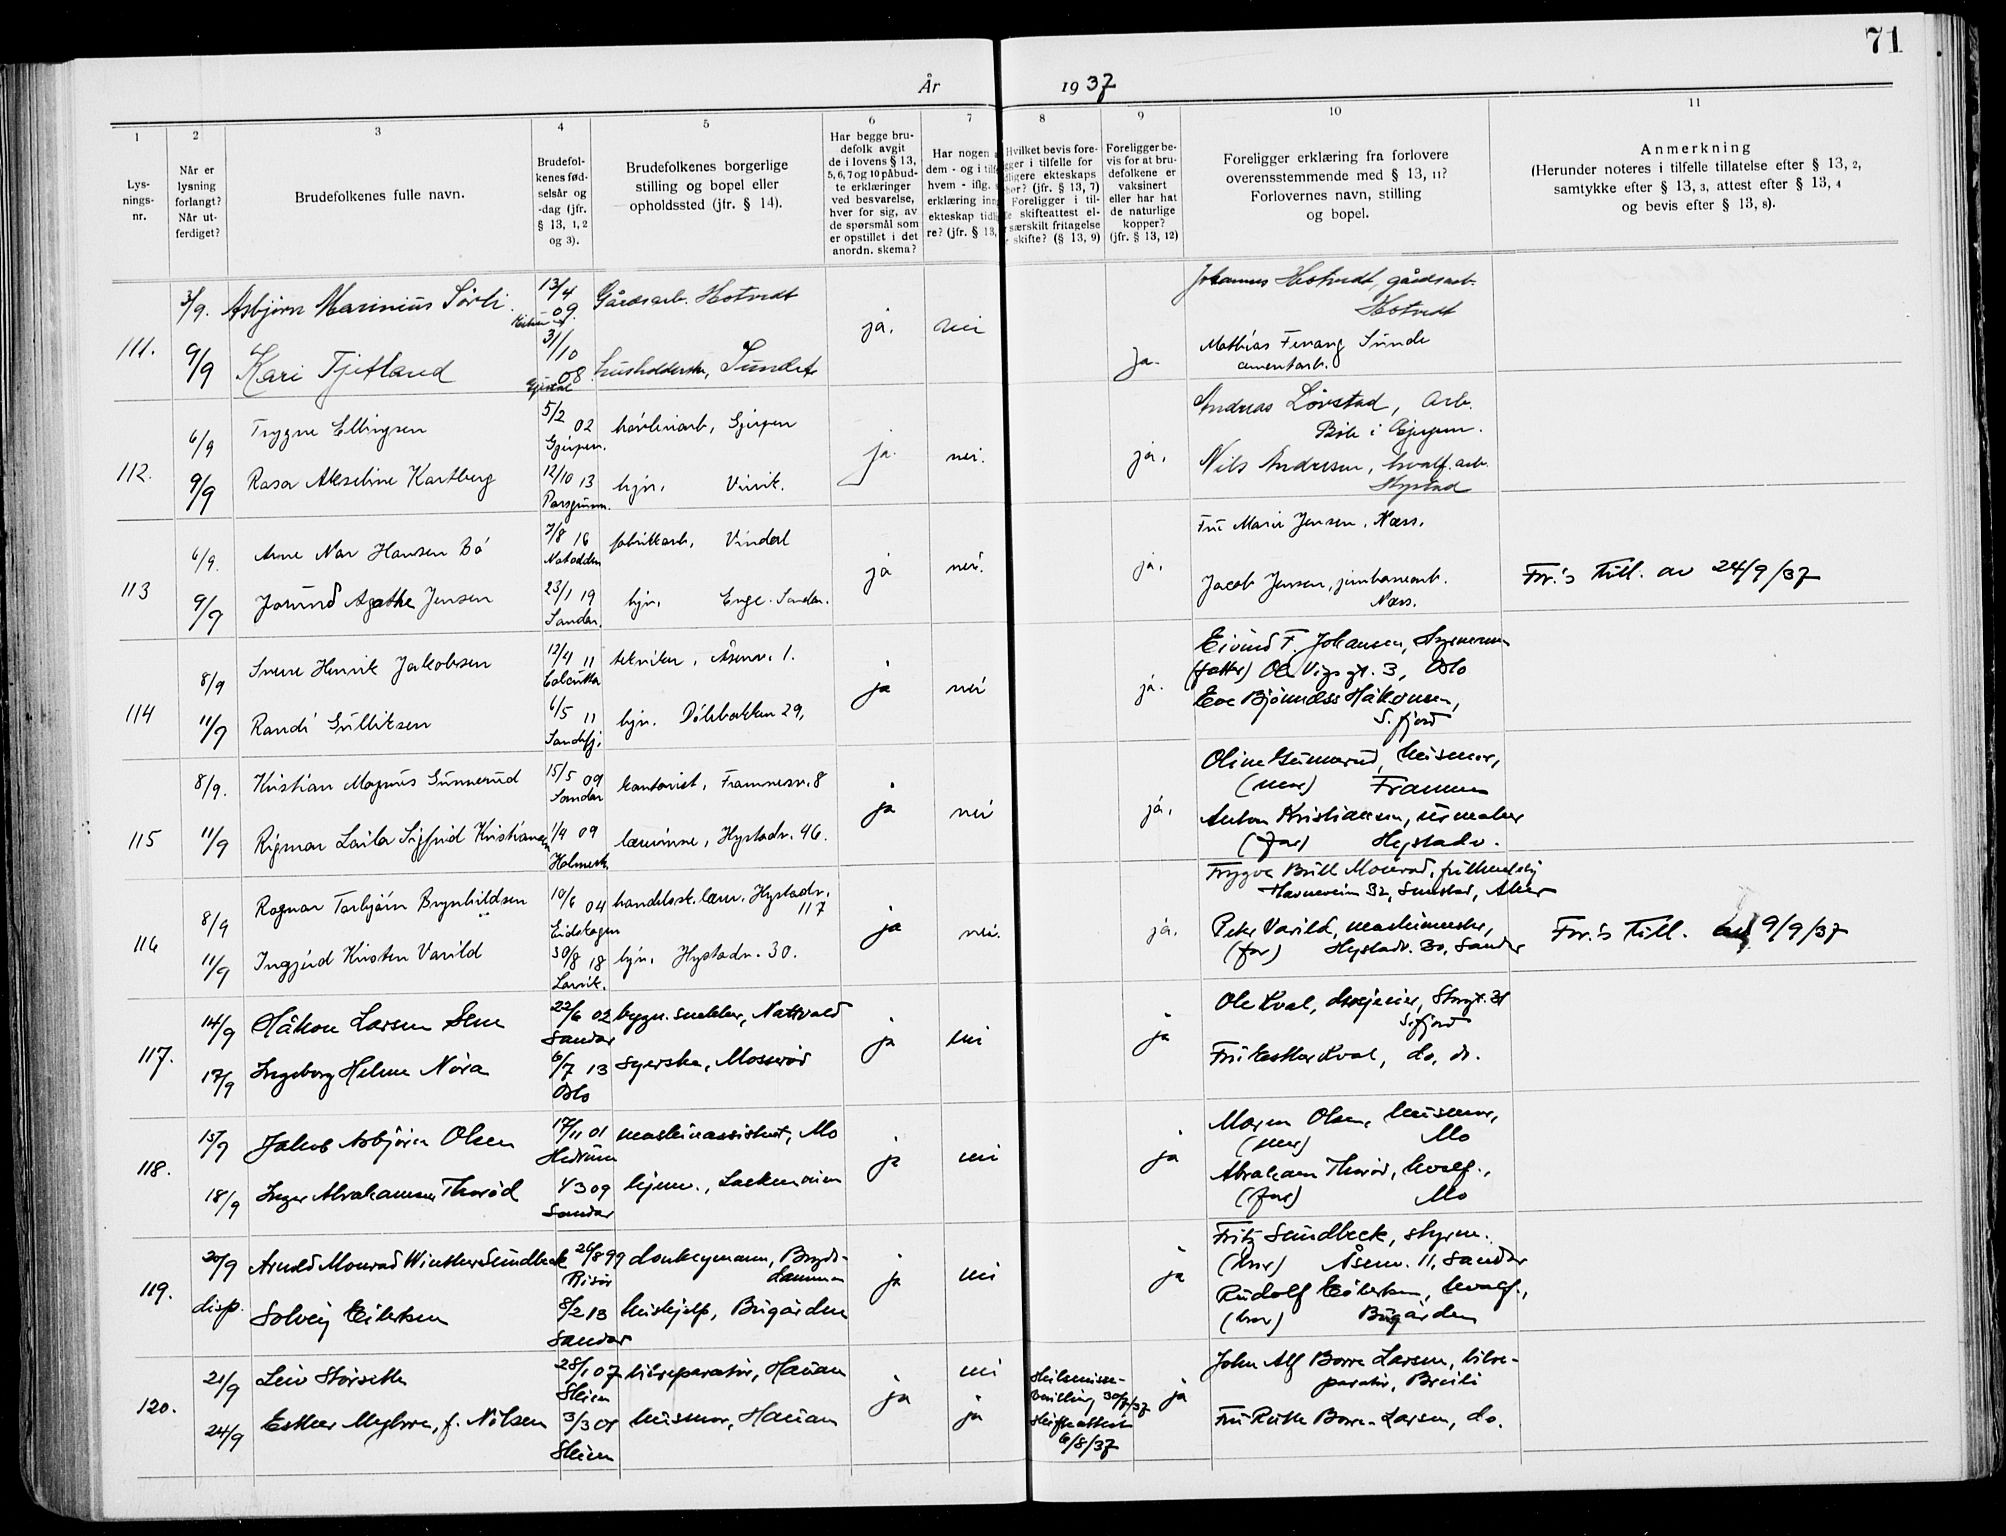 71
År 1937
1 2 3 4 5 6 7 8 9 10 11
Lys-
nings-
nr.
Når er
lysning
forlangt?
Når ut-
ferdiget?
Brudefolkenes fulle navn.
Brudefol-
kenes fød-
selsår og
-dag (jfr.
§ 13, 1, 2
og 3).
Brudefolkenes borgerlige
stilling og bopel eller
opholdssted (jfr. § 14).
Har begge bru-
defolk avgit
de i lovens § 13,
5, 6, 7 og 10 påbud-
te erklæringer
ved besvarelse,
hver for sig, av
de spørsmål som
er opstillet i det
anordn. skema?
Har nogen a
dem - og i tilfe
hvem - iflg.
erklæring inng
ekteskap tidl
re? (jfr. § 13,
Hvilket bevis fore-
gger i tilfelle for
dligere ekteskaps
hør? (jfr. § 13, 7)
Foreligger i til-
le skifteattest el-
særskilt fritagelse
skifte? (§ 13, 9)
Foreligger be-
vis for at bru-
defolkene er
vaksinert
eller har hat
de naturlige
kopper?
(jfr. § 13, 12)
Foreligger erklæring fra forlovere
overensstemmende med § 13, 11?
Forlovernes navn, stilling
og bopel.
Anmerkning
(Herunder noteres i tilfelle tillatelse efter § 13, 2,
samtykke efter § 13, 3, attest efter § 13, 4
og bevis efter § 13, 8).
111.
3/9. Asbjörn Marinius Sörli 13/4 09. Gårdsarb. Hotvedt
9/9 Kari Tjetland 31/10 08 husholderske, Sundet
ja. nei ja.
Johannes Hotvedt, gårdsarb.
Hotvedt
Mathias Fevang Sunde
112.
6/9 Trygve Ellingsen 5/2 02 Gjerpen
Gjerpen.
9/9 Rasa Akseline Kortberg 12/10 13 hjv.
Porsgrunn.
ja. nei. ja.
Andreas Lövstad, Arb.
Böle i Gjerpen.
Nils Andresen, hvalf. arb.
Hystad
113
6/9. Arne Nor Hansen Bö 7/8 16 fabrikkarb, Vindal
Notodden
9/9 Jorund Agathe Jensen 23/1 19 hjv. Enge. Sandar.
Sandar.
ja nei. ja.
Fru Marie Jensen, Næss.
Jacob Jensen, jernbanearb.
Næss.
For.'s Till. av 24/9/37
114
8/9 Sverre Henrik Jakobsen 12/4 11 tekniker, Åsenv. 1.
Calcutta
11/9 Randi Gulliksen 6/5 11 hjv. Dölebakken 29,
Sandefj.
ja nei ja.
Eivind F. Johansen,
Ole Vigs gt. 3, Oslo
S. fjord
115
8/9. Kristian Magnus Gunnerud 15/5 09 kontorist, Framnesv. 8
Sandar
11/9 Rigmor Laila Sigfrid Kristiansen 1/4 09 lærerinne, Hystadv. 46.
Holmestr.
ja nei ja.
Oline Gunnerud, husmor,
(mor) Framnes
Anton Kristiansen, urmaker
(far) Hystadv.
116
8/9 Ragnar Torbjörn Brynhildsen 10/6 04 handelsk. lærer. Hystadv.
117
Eidskogen
11/9 Ingjerd Kirsten Varild 30/8 18 hjv. Hystadv. 30.
Larvik.
ja nei. ja.
Trygve Brill Monrad,
Havnveien 32, Smestad, Aker
Peter Varild, maskinmester,
(far) Hystadv. 30, Sandar
For.'s Till. av 9/9/37
117.
14/9 Håkon Larsen Sem 22/6 02 bygn. snekker, Nattvald
Sandar
17/9 Ingeborg Helene Nöra 6/7 13 syerske, Mosserød
Oslo
ja nei ja
Ole Kval, drosjeeier, Storgt. 31
S.fjord
Fru Esther Kval, do, do.
118.
15/9 Jakob Asbjörn Olsen 17/11 01 maskinassistent, Mo
Hedrum
18/9 Inger Abrahamsen Thoröd 4/3 09 hjemv.,
Sandar
ja nei ja
Maren Olsen, husmor,
(mor) Mo
Abraham Thoröd, hvalf.,
(far) Mo
119.
20/9 Arnold Monrad Winther Sundbeck 26/8 99 donkeymann, Bryds-
dammen
Risör
disp. Solveig Eilertsen 8/2 13 hushjelp, Bugården
Sandar
ja nei ja
Fritz Sundbeck, styrm.
(bror) Åsenv. 11, Sandar
Rudolf Eilertsen, hvalf.,
(bror) Bugården
120.
21/9 Leiv Störseth 28/1 07 bilreparatör, Hauan
Skien
24/9 Esther Myhre, f. Nilsen 3/3 08 husmor, Hauan
Skien
ja nei
ja
Skilsmisse-
bevilling 30/7/37
Skifteattest
6/8/37
ja
John Alf Borre Larsen, bilre-
paratör, Breili
Fru Ruth Borre-Larsen, do.